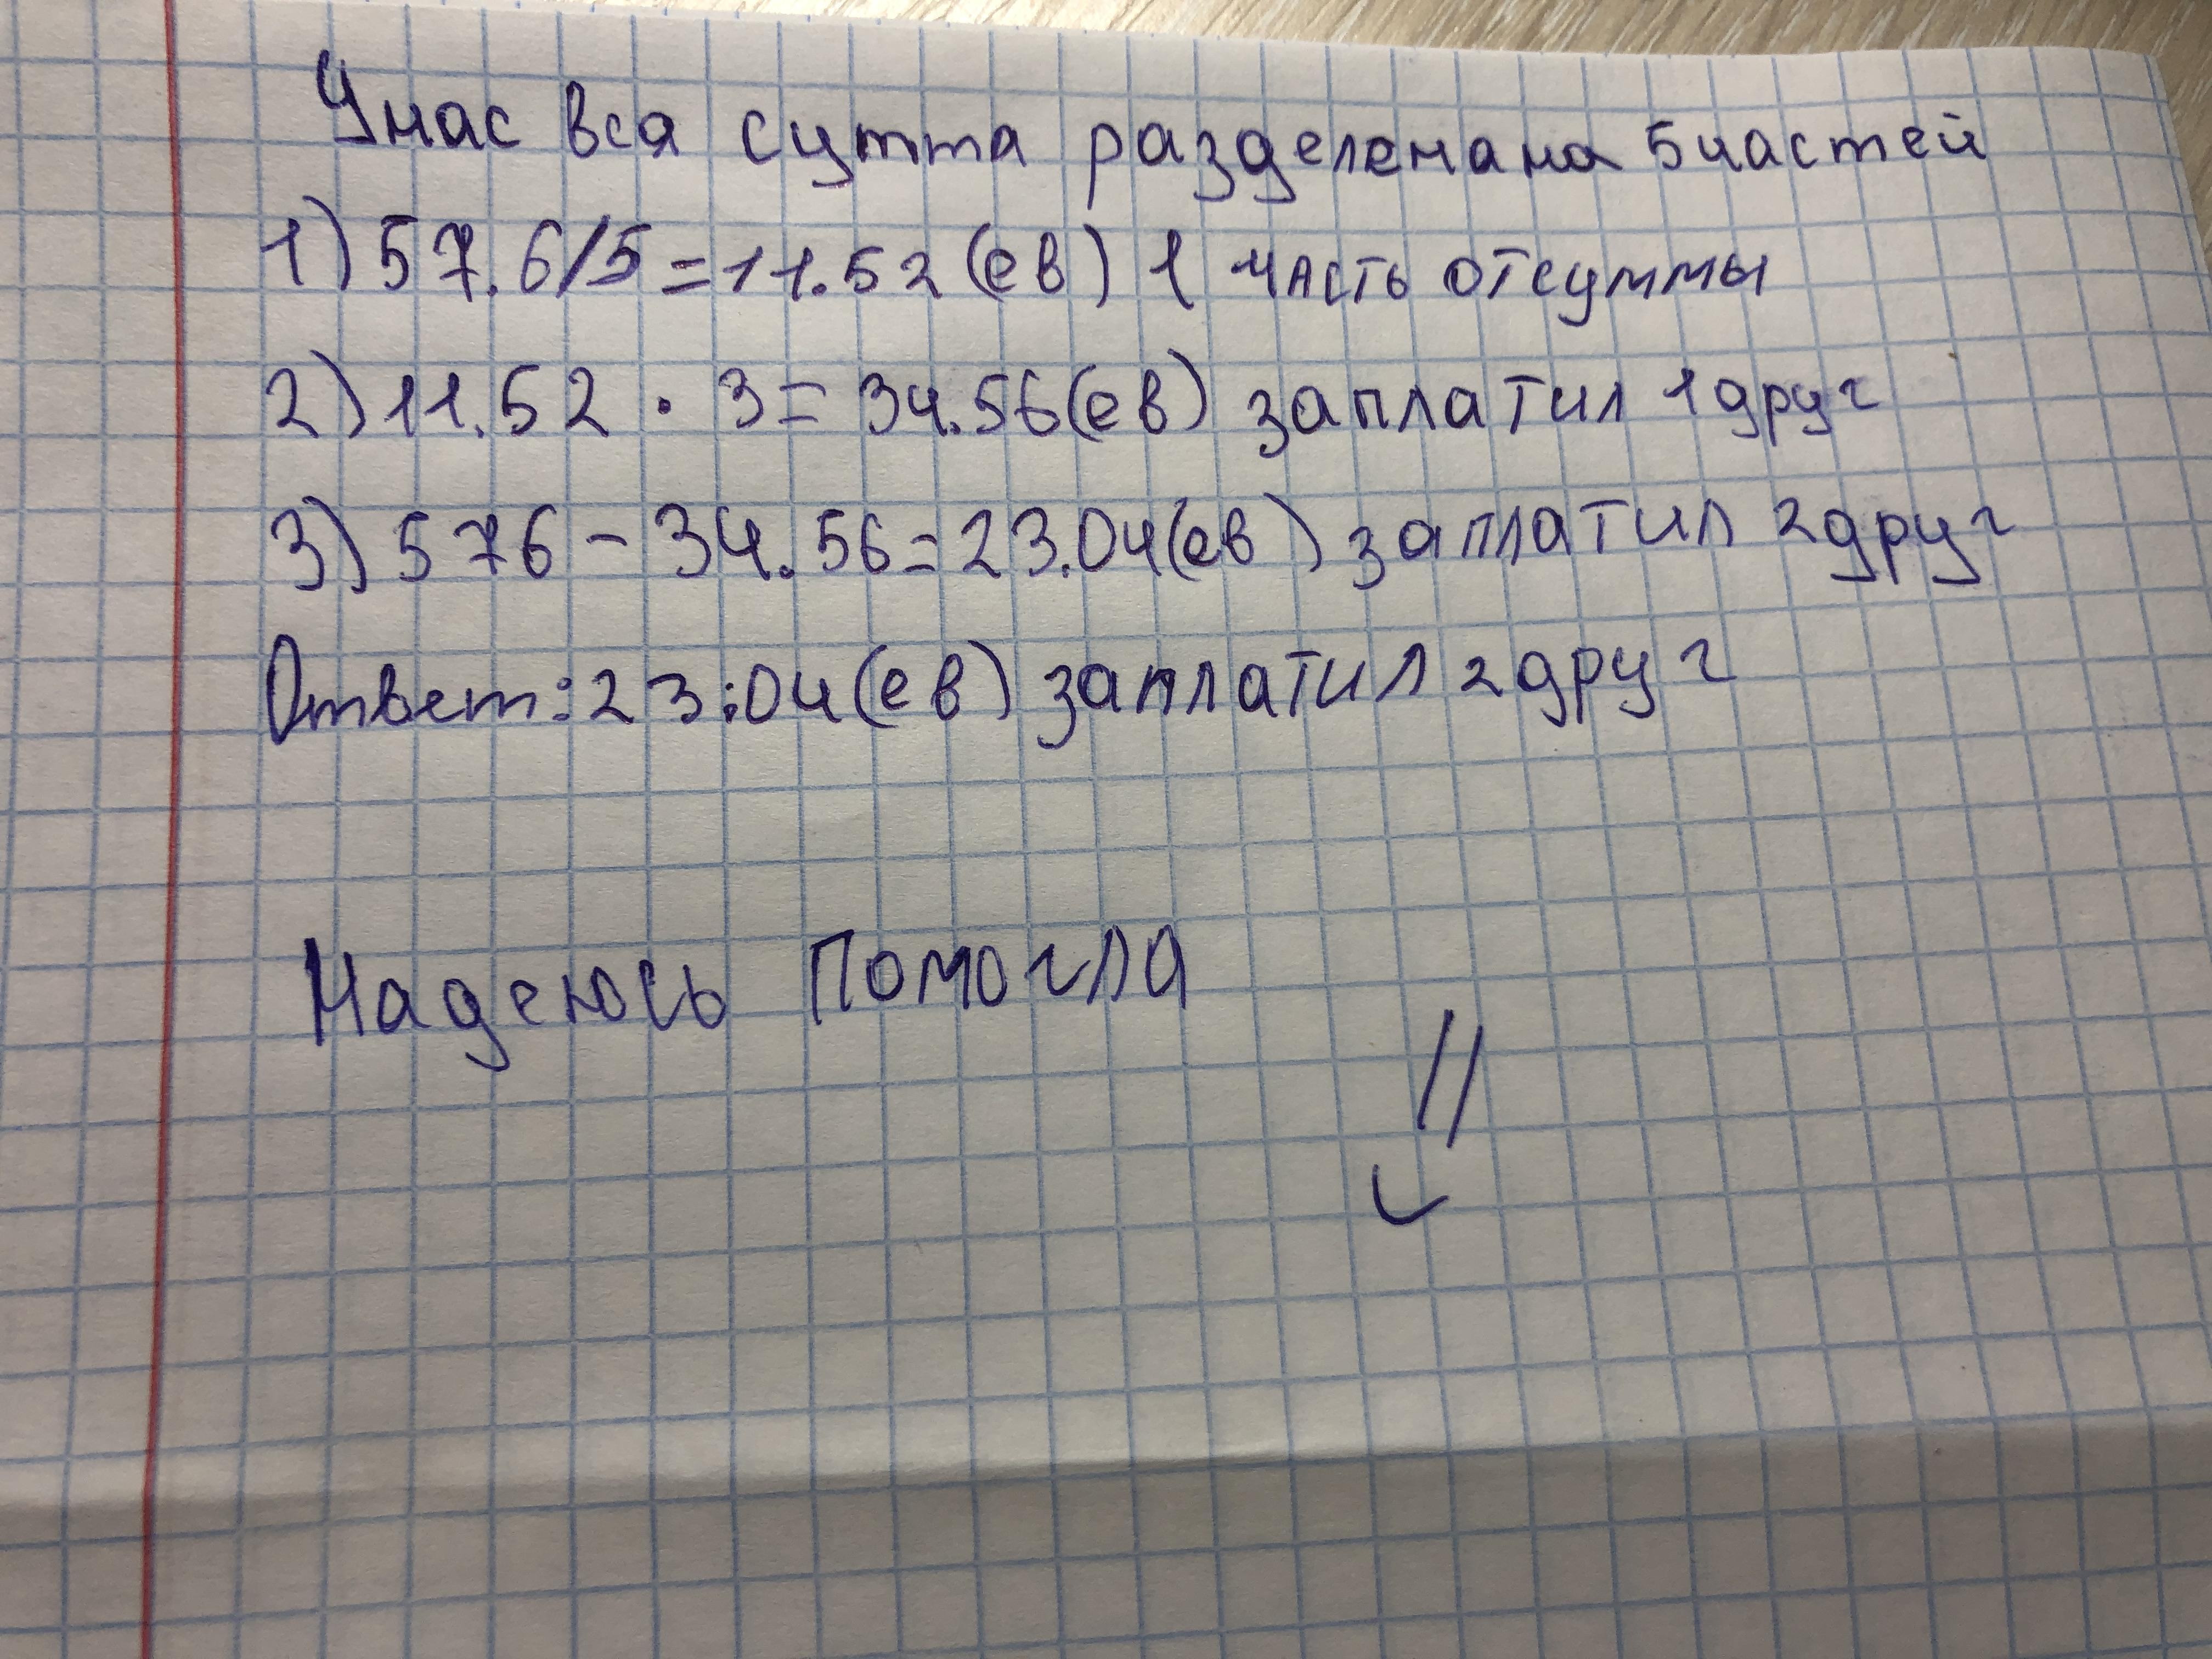 У нас вся сумма разделена на 5 частей
1) 57.6/5=11.52(ев) 1 часть от суммы
2) 11.52 · 3=34.56(ев) заплатил 1 друг
3) 576-34.56=23.04(ев) заплатил 2 друг
Ответ: 23:04(ев) заплатил 2 друг
Надеюсь помогла